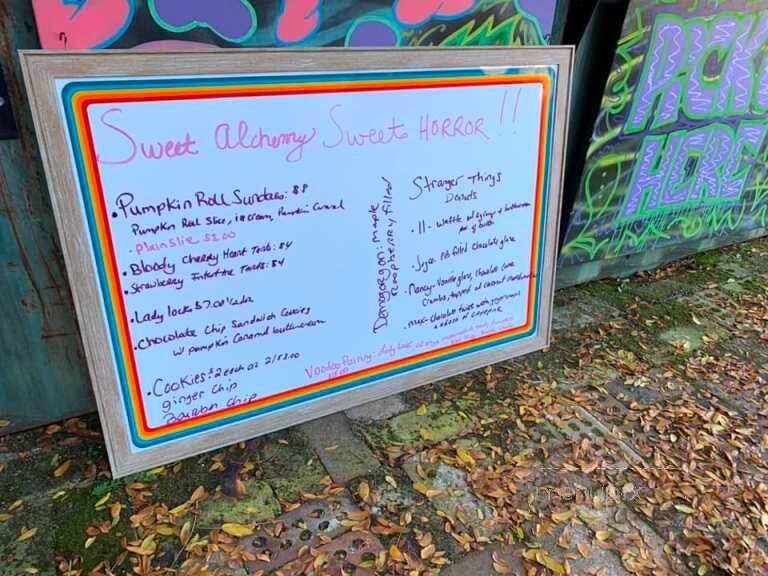 Sweet Alchemy Sweet HORROR!!
• Pumpkin Roll Sundaes: $8
Pumpkin Roll Slice, ice cream, Pumpkin Caramel
• Plain Slice $3.00
• Bloody Cherry Heart Tarts: $4
• Strawberry Tarts: $4
• Lady locks $7.00 1/2 doz
• Chocolate Chip Sandwich Cookies
w/ pumpkin Caramel buttercream
• Cookies: $2 each or 2/$3.00
ginger chip
Bourbon chip
Demogorgon: maple
Raspberry filling
Stranger Things
Donuts
• 11 - waffle w/ syrup & buttercream
• Joyce PB filled chocolate glaze
• Nancy: Vanilla glaze, chocolate cake
Crumbs, topped w/
• Max - chocolate
& dash of cayenne
Voodoo Pairing: Lady lock
PICK
HERE